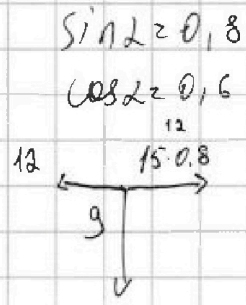 sin α = 0,8
cos α = 0,6
12
12 15·0.8
9